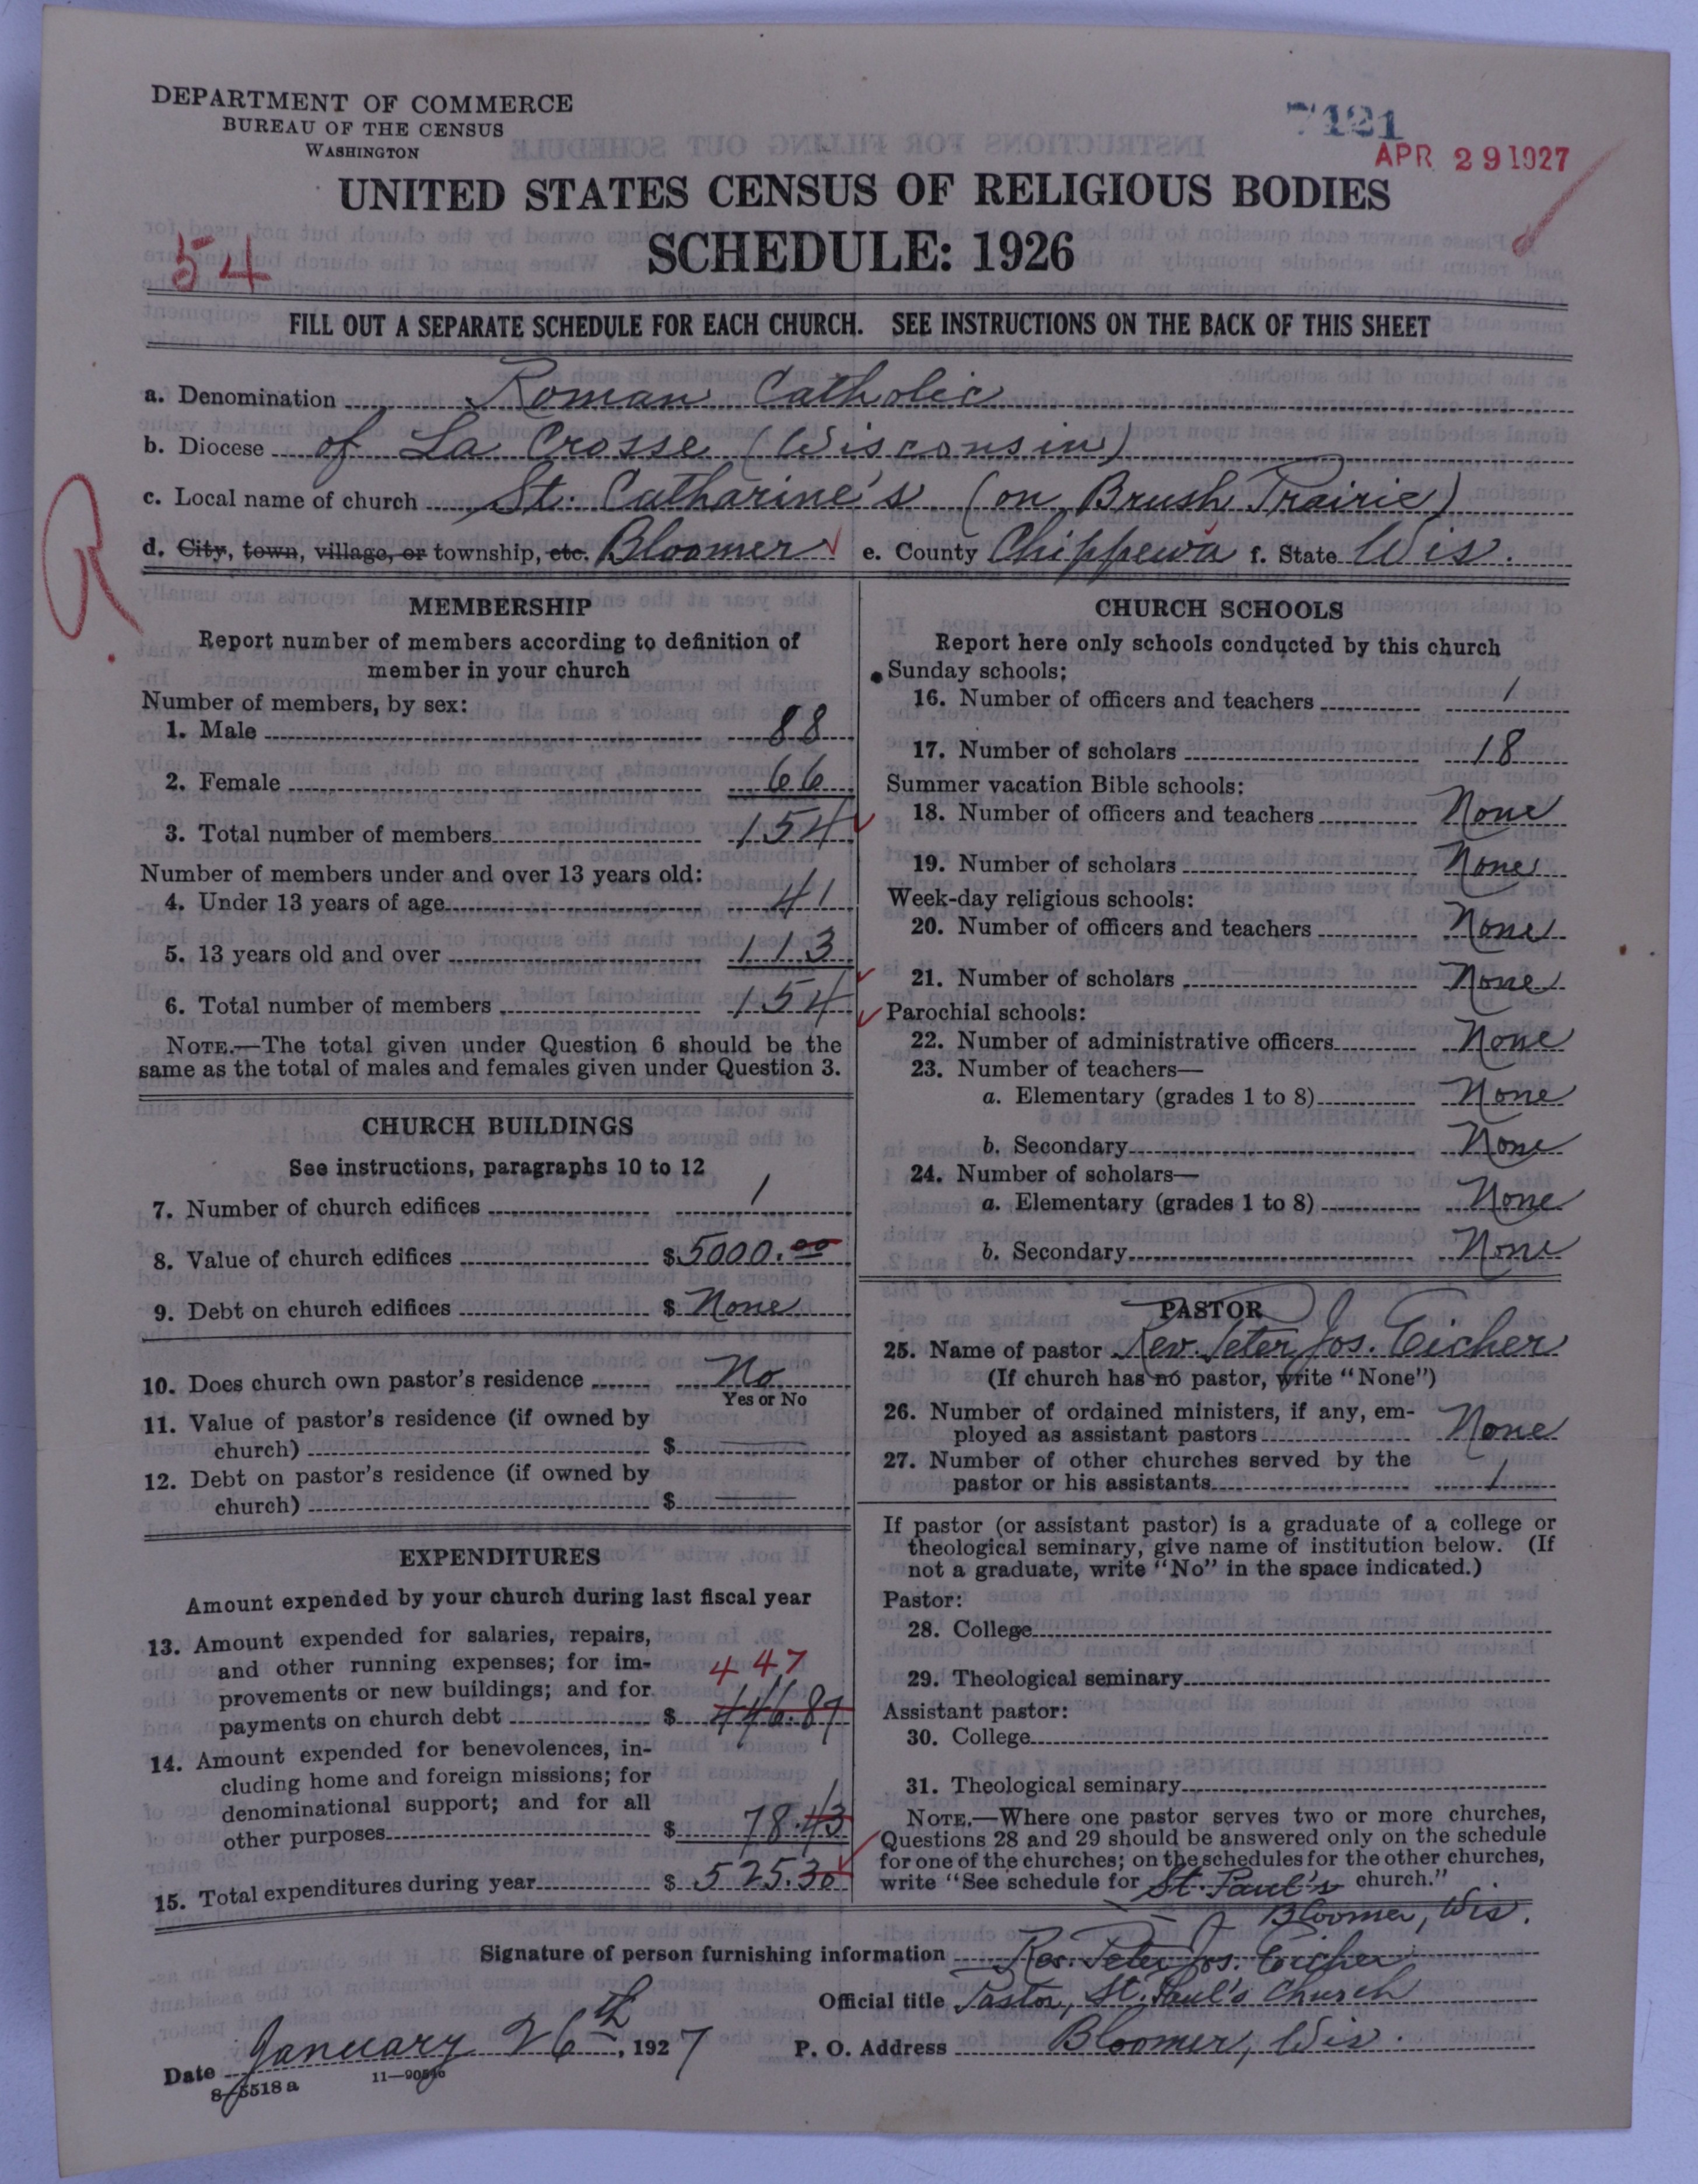 DEPARTMENT OF COMMERCE
BUREAU OF THE CENSUS
WASHINGTON
7121
APR 29 1927
UNITED STATES CENSUS OF RELIGIOUS BODIES
SCHEDULE: 1926
54
FILL OUT A SEPARATE SCHEDULE FOR EACH CHURCH. SEE INSTRUCTIONS ON THE BACK OF THIS SHEET
a. Denomination Roman Catholic
b. Diocese of La Crosse (Wisconsin)
c. Local name of church St. Catharine's (on Brush Prairie)
R
d. City, town, village, or township, etc. Bloomer e. County Chippewa f. State Wis.
MEMBERSHIP
Report number of members according to definition of
member in your church
Number of members, by sex:
1. Male 88
2. Female 66
3. Total number of members 154
Number of members under and over 13 years old:
4. Under 13 years of age 41
5. 13 years old and over 113
6. Total number of members 154
NOTE.—The total given under Question 6 should be the
same as the total of males and females given under Question 3.
CHURCH BUILDINGS
See instructions, paragraphs 10 to 12
7. Number of church edifices 1
8. Value of church edifices $ 5000.00
9. Debt on church edifices $ None
10. Does church own pastor's residence No
Yes or No
11. Value of pastor's residence (if owned by
church) $
12. Debt on pastor's residence (if owned by
church) $
EXPENDITURES
Amount expended by your church during last fiscal year
13. Amount expended for salaries, repairs,
and other running expenses; for im-
447
provements or new buildings; and for
payments on church debt $ 446.87
14. Amount expended for benevolences, in-
cluding home and foreign missions; for
denominational support; and for all
other purposes $ 78.43
15. Total expenditures during year $ 525.30
CHURCH SCHOOLS
Report here only schools conducted by this church
Sunday schools:
16. Number of officers and teachers 1
17. Number of scholars 18
Summer vacation Bible schools:
18. Number of officers and teachers None
19. Number of scholars None
Week-day religious schools:
20. Number of officers and teachers None
21. Number of scholars None
Parochial schools:
22. Number of administrative officers None
23. Number of teachers—
a. Elementary (grades 1 to 8) None
b. Secondary None
24. Number of scholars—
a. Elementary (grades 1 to 8) None
b. Secondary None
PASTOR
25. Name of pastor Rev. Peter Jos. Eicher
(If church has no pastor, write "None")
26. Number of ordained ministers, if any, em-
ployed as assistant pastors None
27. Number of other churches served by the
pastor or his assistants 1
If pastor (or assistant pastor) is a graduate of a college or
theological seminary, give name of institution below. (If
not a graduate, write "No" in the space indicated.)
Pastor:
28. College
29. Theological seminary
Assistant pastor:
30. College
31. Theological seminary
NOTE.—Where one pastor serves two or more churches,
Questions 28 and 29 should be answered only on the schedule
for one of the churches; on the schedules for the other churches,
write "See schedule for St. Paul's church."
Bloomer, Wis.
Signature of person furnishing information Rev. Peter Jos. Eicher
Official title Pastor, St. Paul's Church
Date January 26th, 1927 P. O. Address Bloomer, Wis.
8-5518 a 11—90546